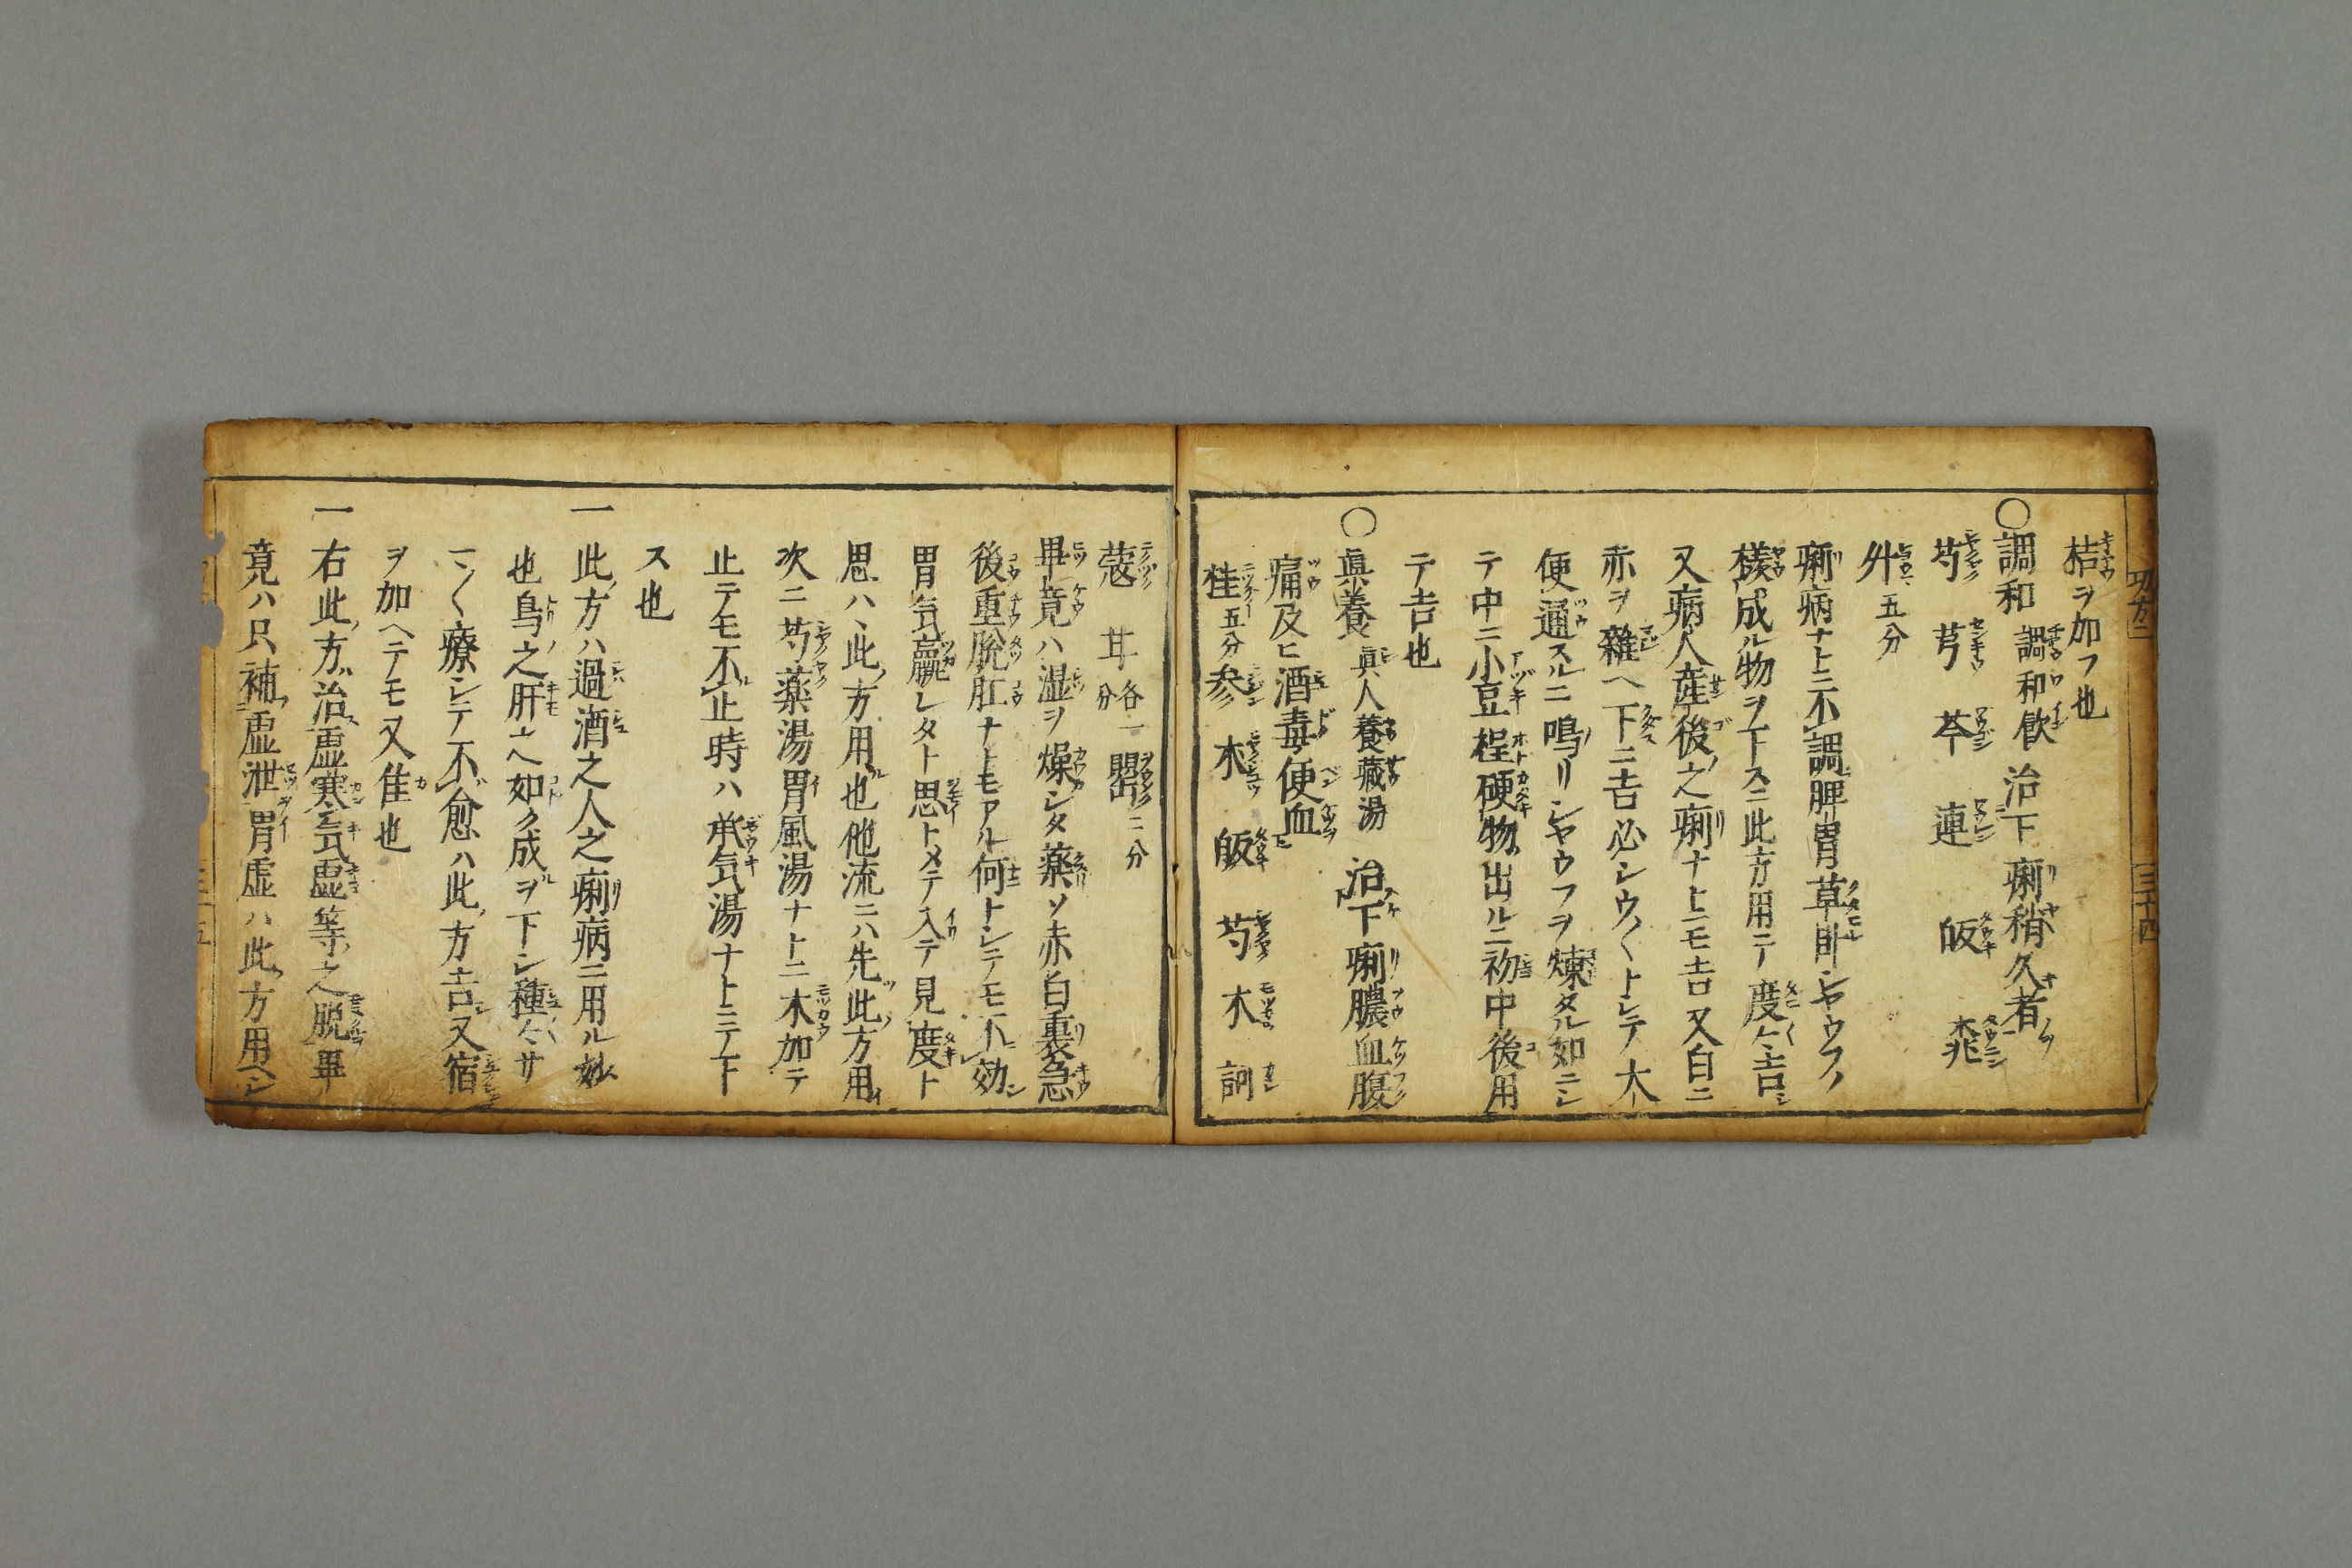 桔ヲ加フ也
〇調和 調和飲 治下痢稍久者
芍 芎 芩 連 皈 桃
升五分
痢病ナトニ不調脾胃草臥シヤウフノ
様成ル物ヲ下スニ此方用テ度々吉
又病人産後之痢ナトニモ吉又白ニ
赤ヲ雑ヘ下ニ吉必シウ〱トシテ大
便通スルニ鳴リシヤウフヲ煉タル如ニシ
テ中ニ小豆程硬物出ルニ初中後用
テ吉也
〇眞養 眞人養藏湯 治下痢膿血腹
痛及ヒ酒毒便血
桂五分 参 木 皈 芍 木 訶
蔻 甘各一分 罌二分
畢竟ハ湿ヲ燥シタ薬ソ赤白裏急
後重脱肛ナトモアル何トシテモ不効
胃気羸レタト思トメテ入テ見度ト
思ハ此方用也他流ニハ先此方用
次ニ芍薬湯胃風湯ナトニ木加テ
止テモ不止時ハ承気湯ナトニテ下
ス也
一此方ハ過酒之人之痢病ニ用ル妙
也鳥之肝之如ク成ヲ下シ種々サ
〱療シテ不愈ハ此方吉又宿
ヲ加ヘテモ又佳也
一右此方治虚寒気虚等之脱畢
竟ハ只補虚泄胃虚ハ此方用ヘシ
切方二
三十四